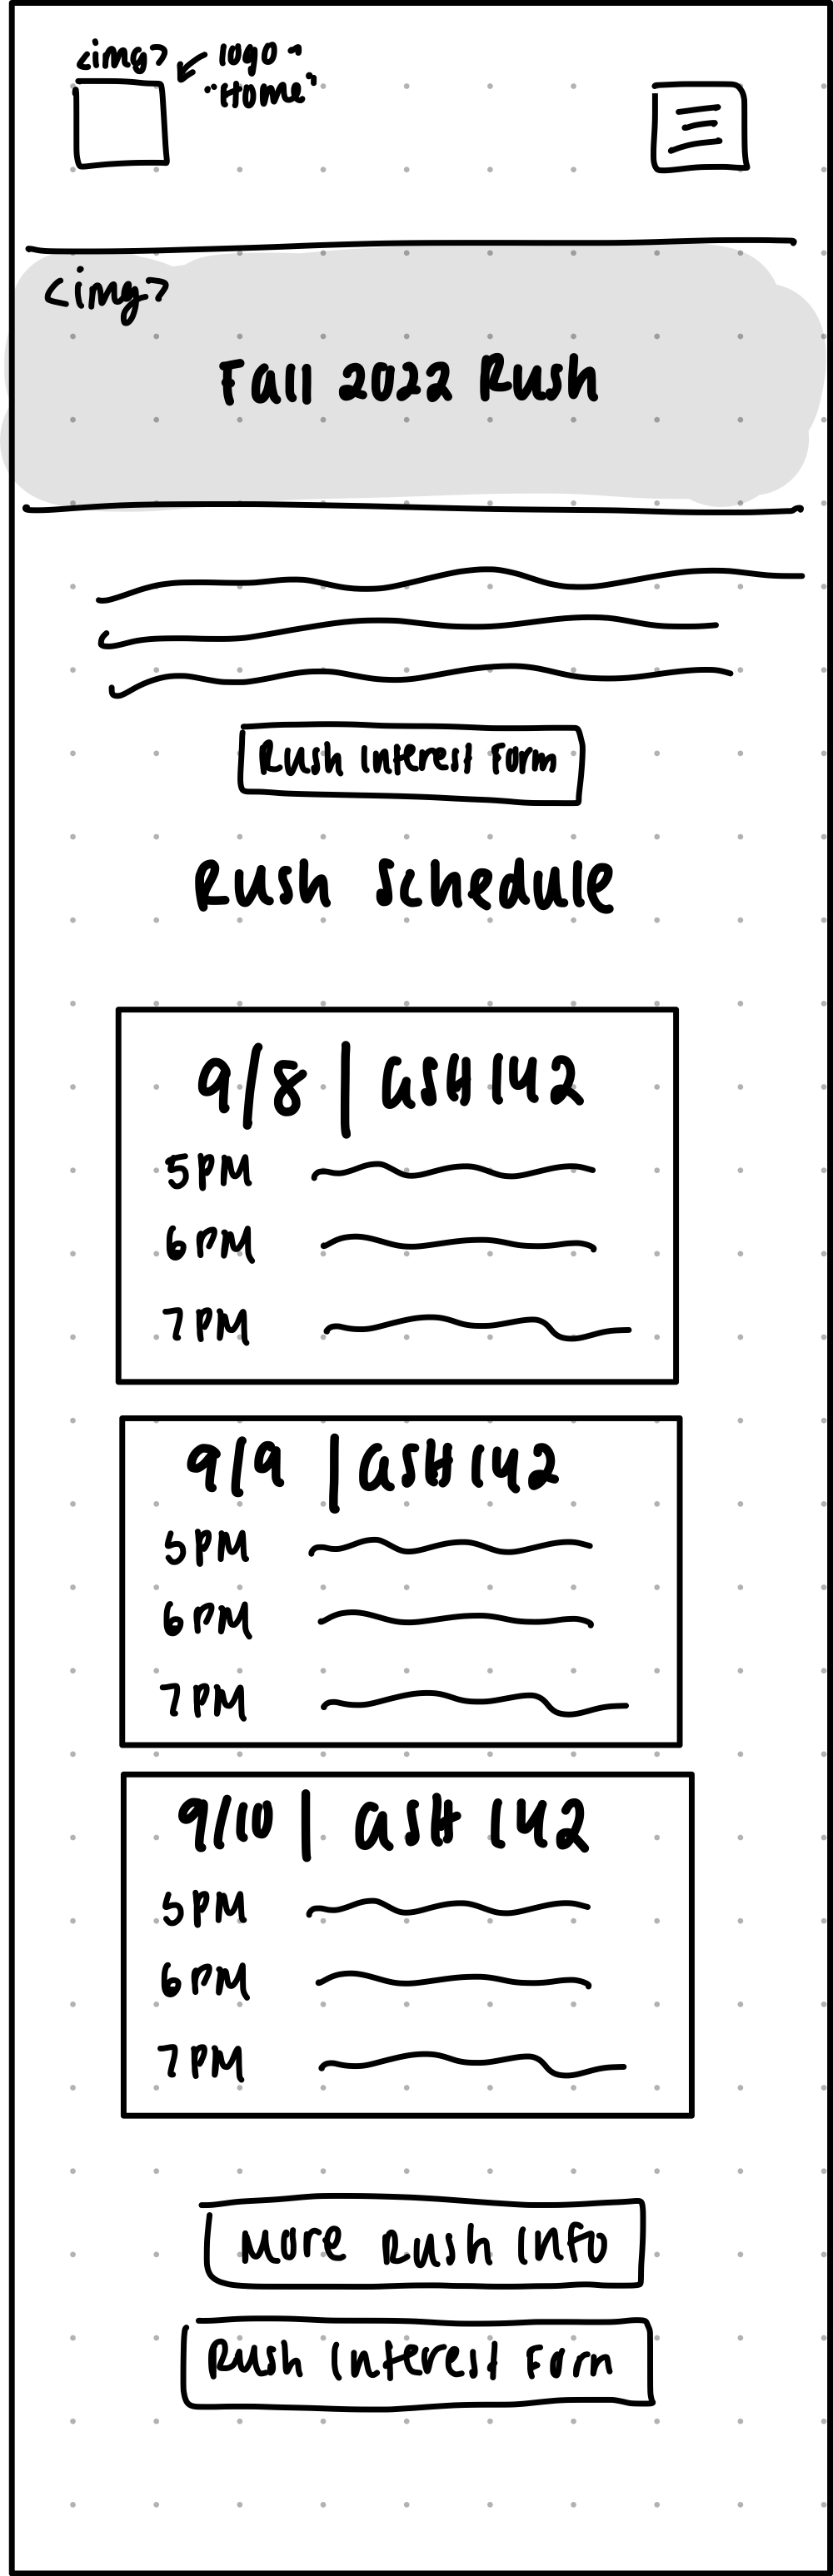 <img> logo -
"Home"
<img>
Fall 2022 Rush
Rush Interest Form
Rush Schedule
9/8 | ASH 142
5 PM
6 PM
7 PM
9/9 | ASH 142
5 PM
6 PM
7 PM
9/10 | ASH 142
5 PM
6 PM
7 PM
More Rush Info
Rush Interest Form